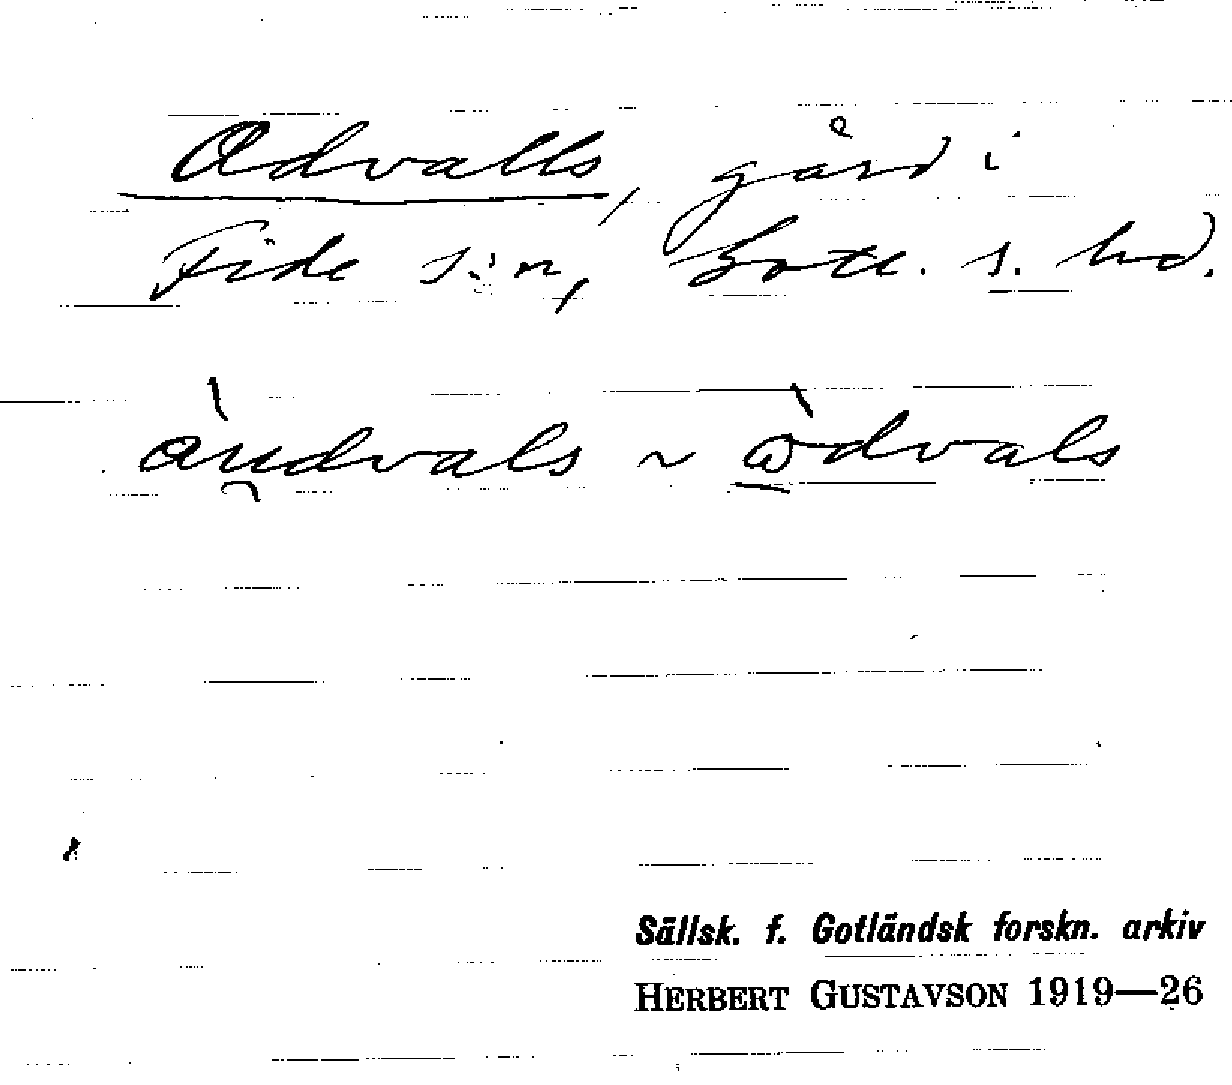 Odvalls, gård i
Fide s:n, Gotl. s. hd.
àu̯dvals ~ ὼ̲dvals
Sällsk. f. Gotländsk forskn. arkiv
HERBERT GUSTAVSON 1919—26